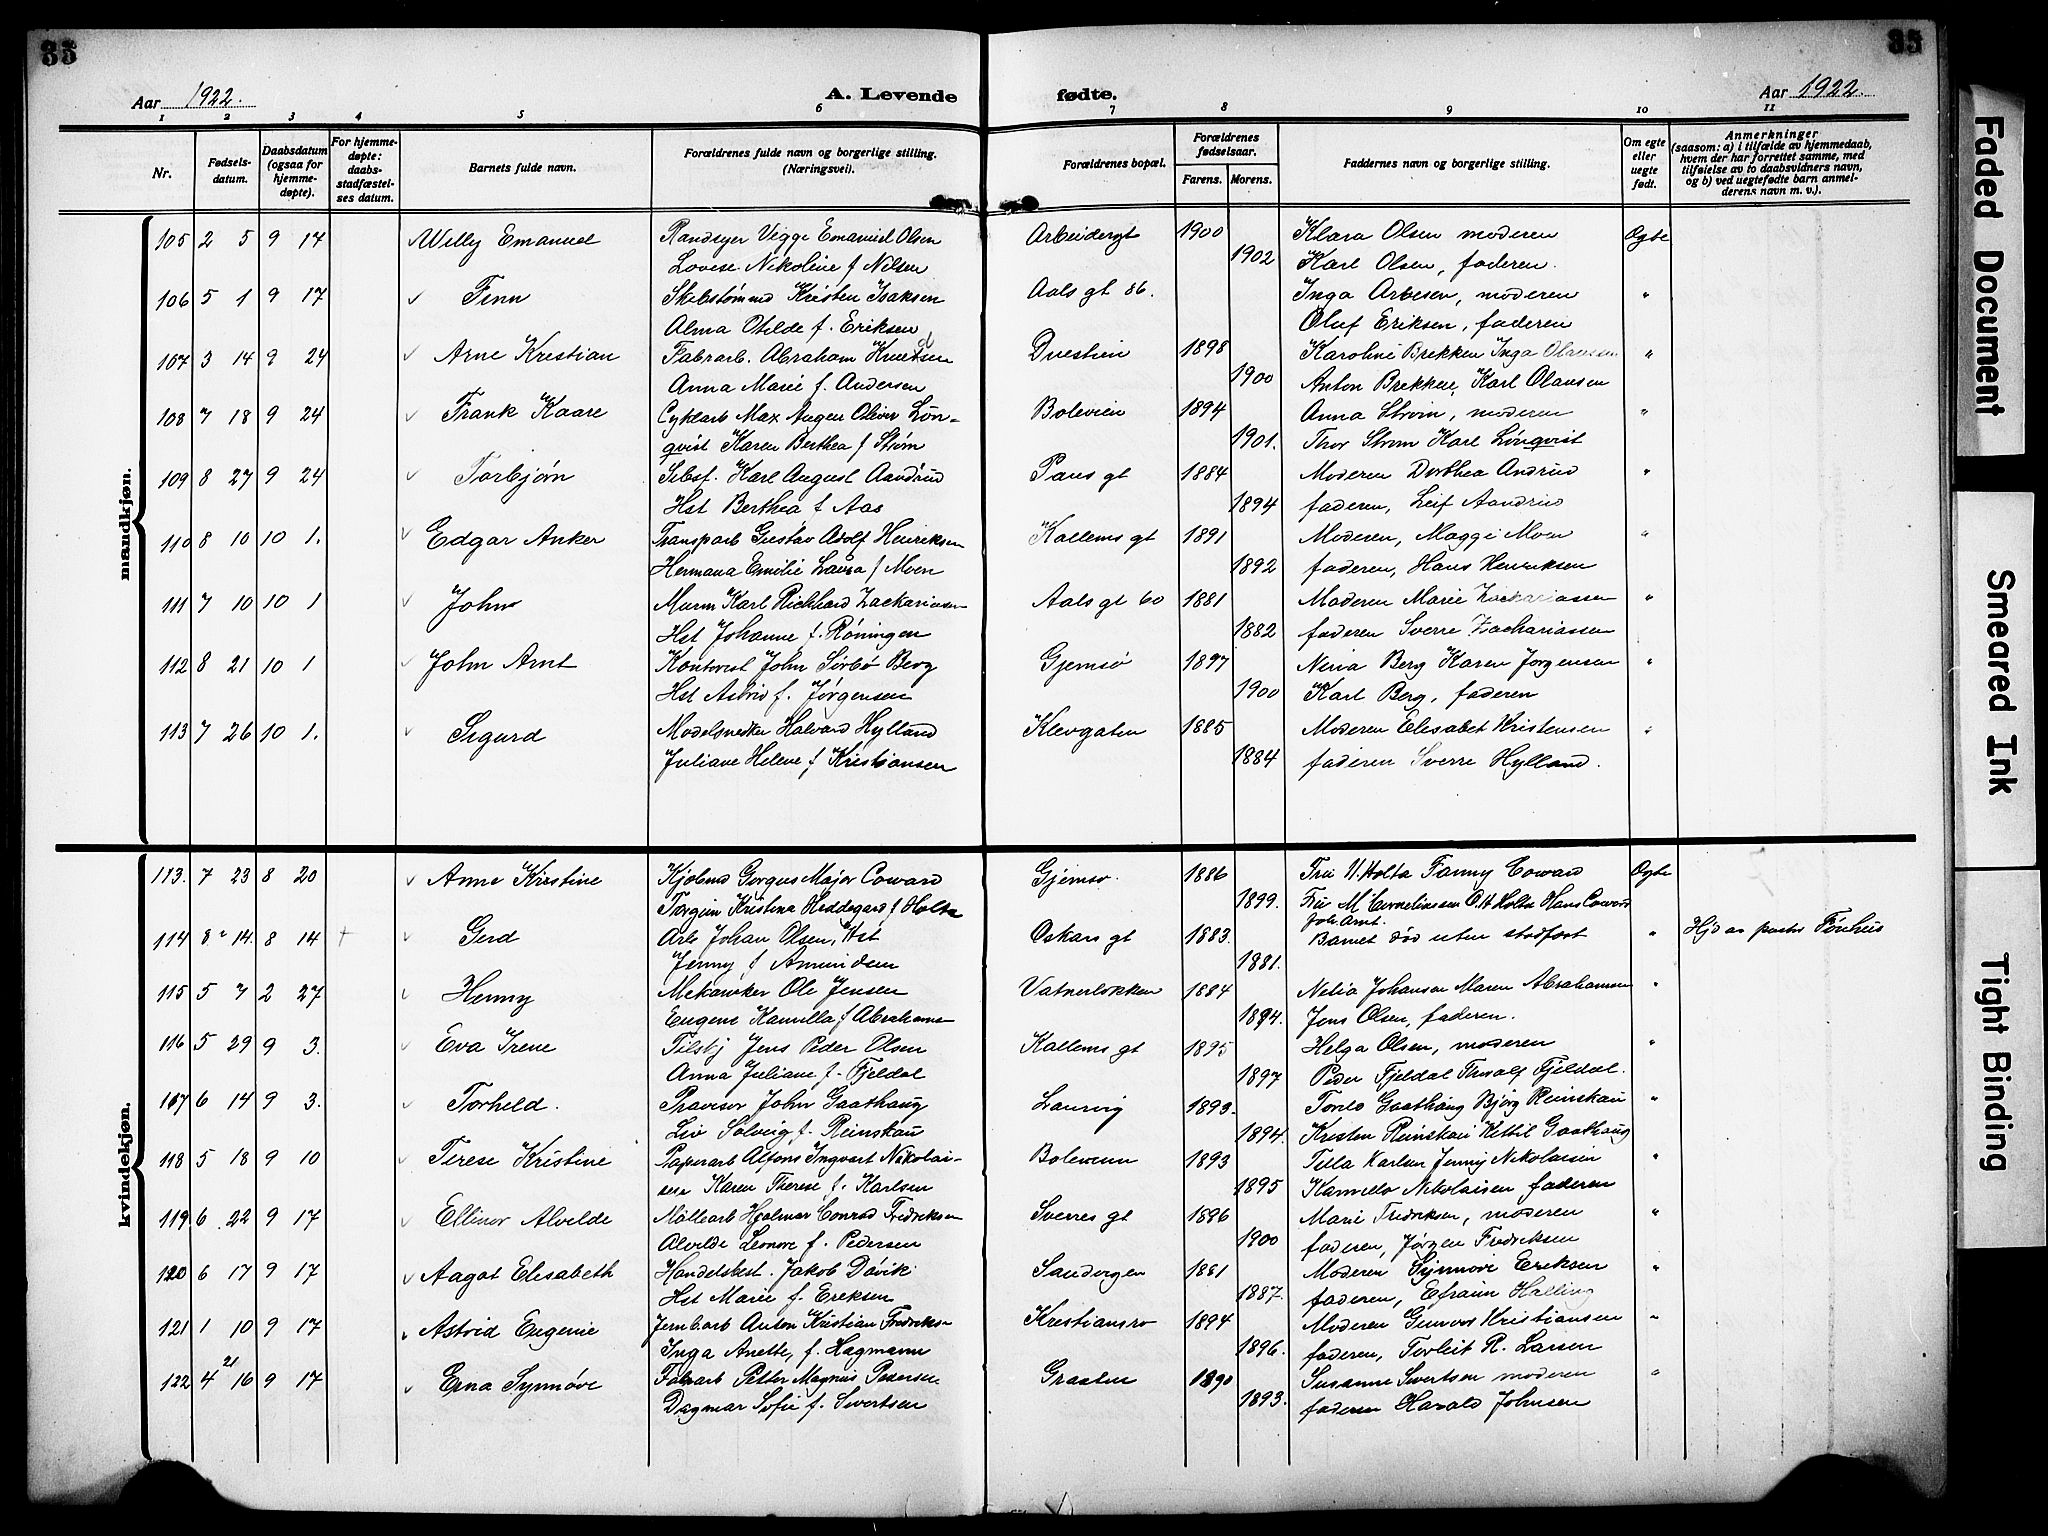 35
35
Aar 1922.
A. Levende
fødte.
Aar 1922.
1 2 3 4 5 6 7 8 9 10 11
Nr.
Fødsels-
datum.
Daabsdatum
(ogsaa for
hjemme-
døpte).
For hjemme-
døpte:
daabs-
stadfæstel-
ses datum.
Barnets fulde navn.
Forældrenes fulde navn og borgerlige stilling.
(Næringsvei).
Forældrenes bopæl.
Forældrenes
fødselsaar.
Farens. Morens.
Faddernes navn og borgerlige stilling.
Om egte
eller
uegte
født.
Anmerkninger
(saasom: a) i tilfælde av hjemmedaab,
hvem der har forrettet samme, med
tilføielse av to daabsvidners navn,
og b) ved uegtefødte barn anmel-
derens navn m. v.).
mandkjøn.
105 2 5 9 17 Willy Emanuel Randsyer Viggo Emanuel Olsen Arbeidergt 1900 Klara Olsen moderen Egte
Lovise Nikoline f Nilsen 1902 Karl Olsen, faderen.
106 5 1 9 17 Finn Skibstømmd Kristen Isaksen Aals gt 86. Inga moderen "
Alma Otilde f. Eriksen Oluf Eriksen, faderen
107 3 14 9 24 Arne Kristian Fabrarb. Abraham Knutsen 1898 Karoline Brekken Inga Olausen "
Anna Marie f. Andersen 1900 Anton Brekken, Karl Olausen
108 7 18 9 24 Frank Kaare Cyklarb Max Olivir Lön- Boleveien 1894 Anna Strøm, moderen "
qvist Karen Berthea f Strøm 1901. Thor Strøm Karl Lönqvist
109 8 27 9 24 Torbjørn Karl August Aandrud Paus gt 1884 Moderen Dorthea Andrud "
Hst Berthea f Aas 1894 faderen, Leif Aandrud
110 8 10 10 1. Edgar Anker Transparb Gustav Adolf Henriksen Kallems gt 1891 Moderen, Maggi Moen "
Hermana Emilie Laura f Moen 1892 faderen, Hans Henriksen
111 7 10 10 1 John Murm Karl Rickhard Zackariasen Aals gt 60 1881 Moderen Marie Zackariassen "
Hst Johanne f. Röningen 1882 faderen Sverre Zachariassen
112 8 21 10 1 John Arnt Kontorist John Sörbö Berg Gjemsö 1897 Berg Karen Jorgensen "
Hst Astrid f. Jörgensen 1900 Karl Berg, faderen
113 7 26 10 1. Sigurd Modelsnedker Halvard Hylland Klevgaten 1885 Moderen Elisabet Kristensen "
Juliane Helene f Kristiansen 1884 faderen Sverre Hylland.
kvindekjøn.
113. 7 23 8 20 Anne Kirstine Kjöbmd Gorgus Major Coward Gjemsö. 1886 Fru H. Holta Fanny Coward Egte
Torgun Kristina Heddegard f Holta 1899. Fru M Cornelinssen O. H Holta Hans Coward
Joh Arnt.
114 8 14. 8 14 + Gerd Arb Johan Olsen, Hst Oskars gt 1883. Barnet död uten stadfæst " Hjd av pastor Fönhus
Jenny f Amundsen 1881.
115 5 7 2 27 Henny Ole Jensen Vatnerlökken 1884 Nelia Johansen Maren Abrahamsen "
Eugene Kamilla f Abrahams 1894. Jens Olsen, faderen.
116 5 29 9 3. Eva Irene Jens Peder Olsen Kallems gt 1895 Helga Olsen, moderen "
Anna Juliane f. Fjeldal 1897 Peder Fjeldal Thoralf Fjeldal.
117 6 14 9 3. Torheld. Provisor John Gaathaug Laurvig 1893. Gaathaug Bjørg Reinskau "
Liv Solveig f. Reinskau 1894. Kristen Reinskau Kittil Gaathaug
118 5 18 9 10 Terese Kristine Papirarb Alfons Ingvart Nikolai- Boleveien 1893 Tilla Karlsen Jenny Nikolaisen "
sen Karen Therese f. Karlsen 1895 Kamillo Nikolaisen faderen
119 6 22 9 17 Ellinor Alvilde Hjalmar Conrad Fredriksen Sverres gt 1896 Marie Fredriksen, moderen "
Alvilde Leonore f. Pedersen 1900 faderen, Jörgen Fredriksen
120 6 17 9 17 Aagot Elisabeth Handelsbest. Jakob Dövik Sandvigen 1881 Moderen Synnöve Eriksen "
Hst Marie f. Eriksen 1887. faderen, Efraim Halling
121 1 10 9 17 Astrid Eugenie Jernb.arb Anton Kristian Fredriks- 1894 Moderen Gunvor Kristiansen "
Inga Anette, f. Hagmann 1896. faderen, Torleif R. Larsen
21
122 4 16 9 17 Erna Synnöve Fabrarb Petter Magnus Pedersen Graaten 1890 Susanne Sivertsen moderen "
Dagmar Sofie f. Sivertsen 1893. faderen Harald Johnsen
Faded Document
Smeared Ink
Tight Binding